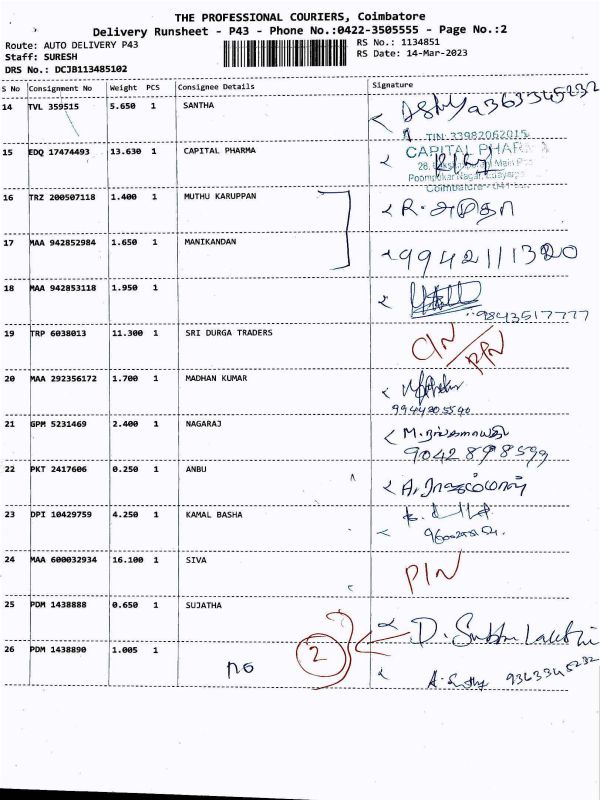 THE PROFESSIONAL COURIERS, Coimbatore
Delivery Runsheet - P43 - Phone No.:0422-3505555 - Page No.:2
Route: AUTO DELIVERY P43
Staff: SURESH
DRS No.: DCJB113485102
RS No.: 1134851
RS Date: 14-Mar-2023
S No Consignment No Weight PCS Consignee Details Signature
14 TVL 359515 5.650 1 SANTHA
TIN: 33982062015
15 EDQ 17474493 13.630 1 CAPITAL PHARMA CAPITAL PHARMA
Coimbatore
16 TRZ 200507118 1.400 1 MUTHU KARUPPAN R.
17 MAA 942852984 1.650 1 MANIKANDAN 9942111320
18 MAA 942853118 1.950 1
9843517777
19 TRP 6038013 11.300 1 SRI DURGA TRADERS
20 MAA 292356172 1.700 1 MADHAN KUMAR
9944205540
21 GPM 5231469 2.400 1 NAGARAJ M.
9042898599
22 PKT 2417606 0.250 1 ANBU A.
23 DPI 10429759 4.250 1 KAMAL BASHA
24 MAA 600032934 16.100 1 SIVA P/N
25 PDM 1438888 0.650 1 SUJATHA D.
26 PDM 1438890 1.005 1 no 2
9363345232